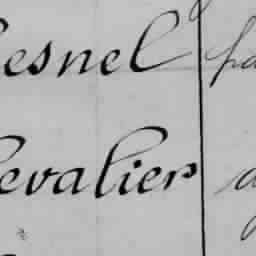 esnel pa
evalier a